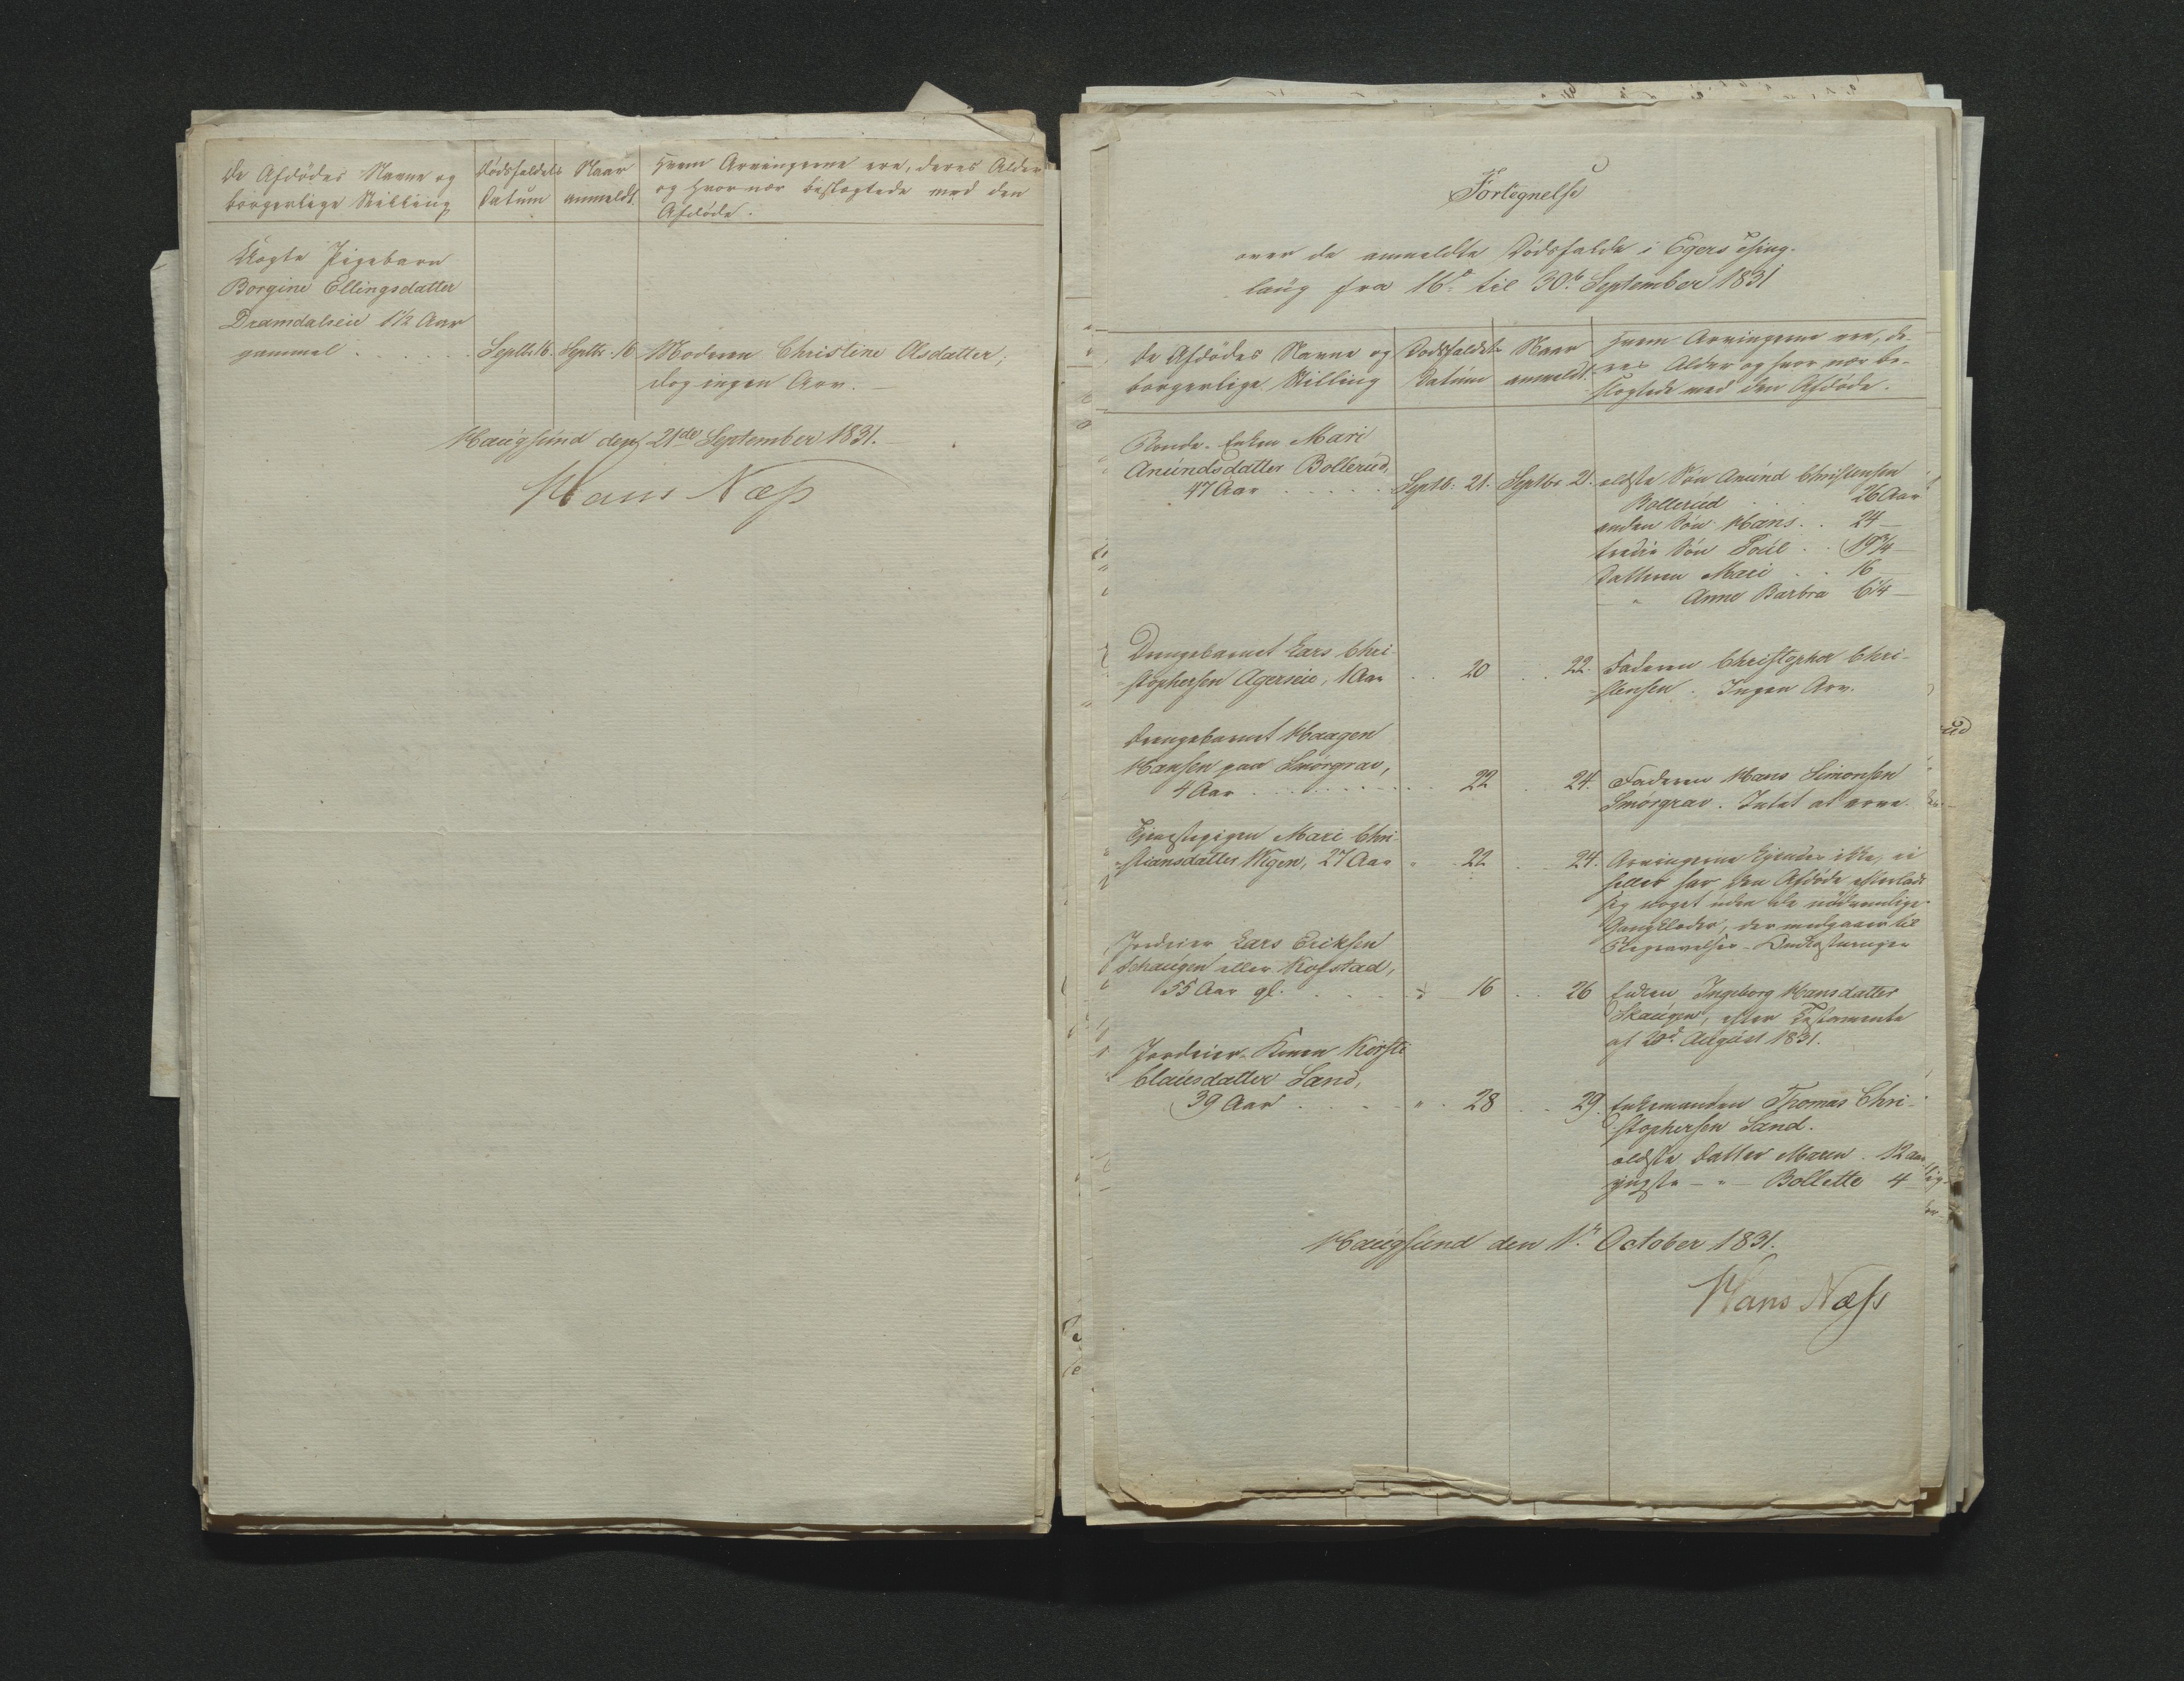 De Afdødes Navne og
borgerlige Stilling
Dødsfaldets
Datum
Naar
anmeldt.
Hvem Arvingerne ere, deres Alder
og hvor nær beslægtede med den
Afdøde.
Uægte Pigebarn
Borgine Ellingsdatter
Dramdalseie 1½ Aar
gammel . . . . . Septbr. 16. Septbr. 16 Moderen Christine Olsdatter;
dog ingen Arv. —
Haugsund den 21de September 1831.
Hans Næss
Fortegnelse
over de anmeldte Dødsfalde i Egers Thing-
laug fra 16de til 30te September 1831
De Afdødes Navne og
borgerlige Stilling
Dødsfaldets
Datum
Naar
anmeldt.
Hvem Arvingerne ere, de-
res Alder og hvor nær be-
slægtede med den Afdøde.
Bonde-Enken Mari
Amundsdatter Bollerud,
47 Aar . . . . . Septb. 21. Septbr 21. ældste Søn Amund Christensen
Bollerud . . 26 Aar
anden Søn Hans . . 24 —
tredie Søn Poul . . 19¾ —
Datteren Mari . . 16 —
— " Anne Barbra 6¼ —
Drengebarnet Lars Chri-
stophersen Agerseie, 1 Aar . . 20 . . 22. Faderen Christopher Chri-
stensen. Ingen Arv.
Drengebarnet Haagen
Hansen paa Smørgrav,
4 Aar . . . . . . . 22 . 24. Faderen Hans Simonsen
Smørgrav. Intet at arve.
Tjenestepigen Mari Chri-
stiansdatter Wigen, 27 Aar " 22 . 24. Arvingerne kjendes ikke, ei
heller har den Afdøde efterladt
sig noget uden de nødvendige
Gangklæder, der medgaaer til
Begravelses-Omkostninger
Jordeier Lars Eriksen
Schaugen eller Kofstad,
55 Aar gl. . . . . 16 . . 26 Enken Ingeborg Hansdatter
Skaugen, efter Testamente
af 20d August 1831.
Jordeier-Konen Kirsti
Clausdatter Sand,
39 Aar . . . " . 28 . . 29. Enkemanden Thomas Chri-
stophersen Sand.
ældste Datter Maren . 12 Aar
yngste — " — Bollette 4
Haugsund den 1ste October 1831.
Hans Næss